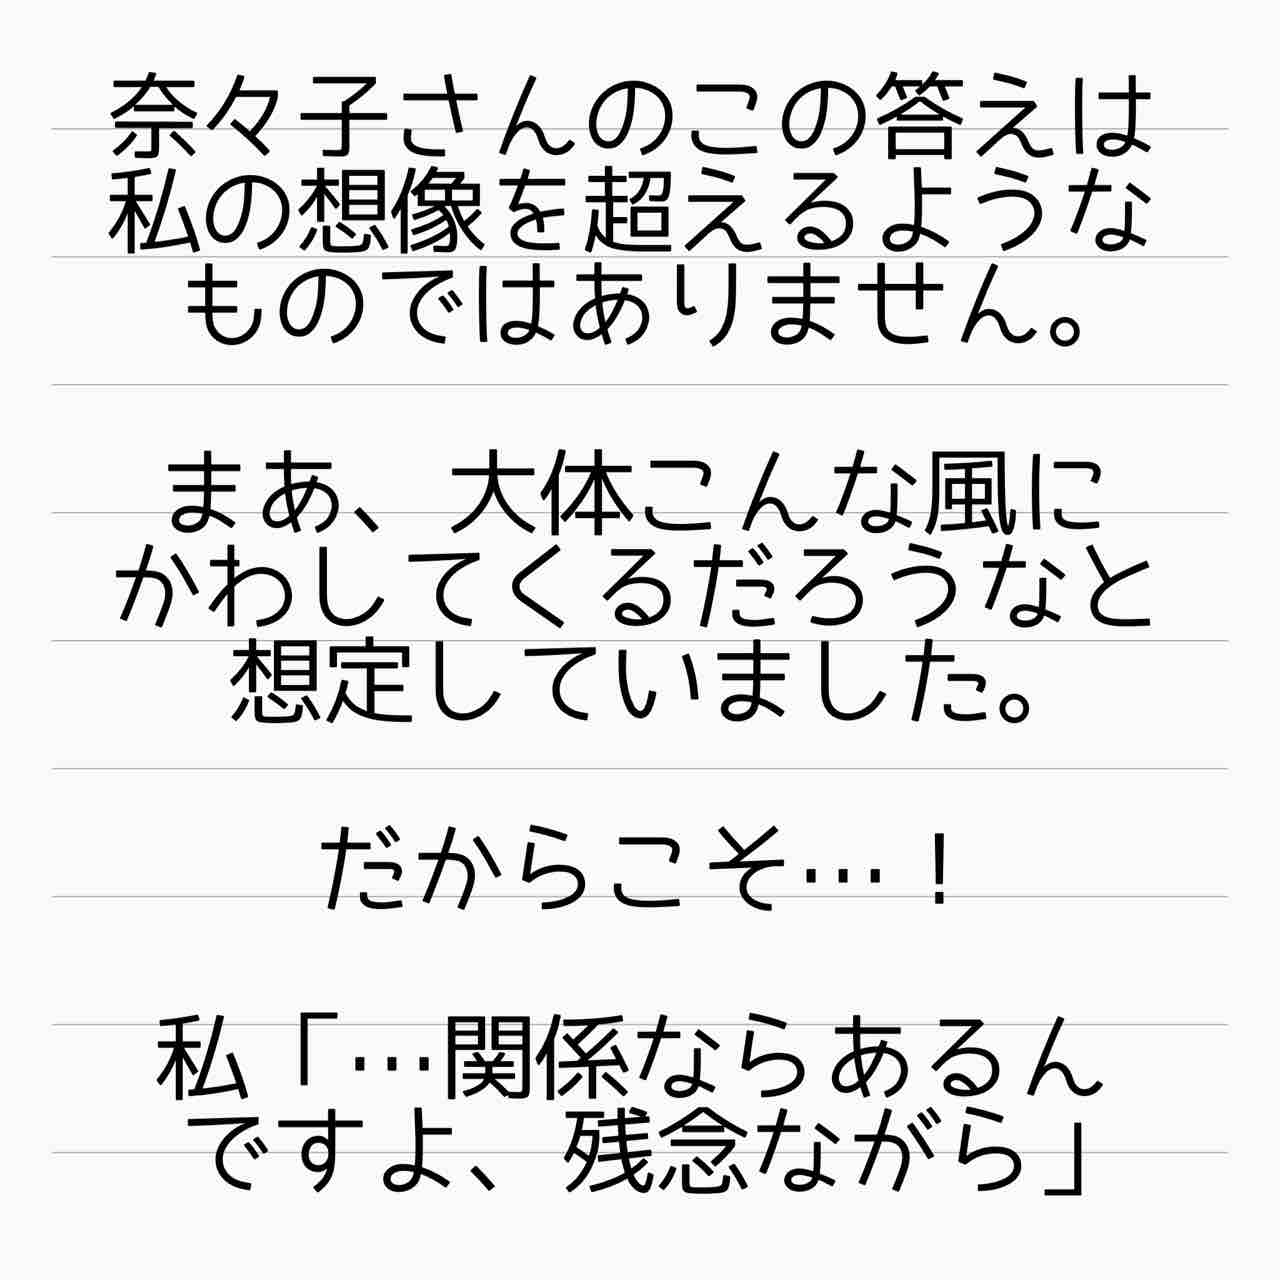 奈々子さんのこの答えは
私の想像を超えるような
ものではありません。
まあ、大体こんな風に
かわしてくるだろうなと
想定していました。
だからこそ…！
私「…関係ならあるん
ですよ、残念ながら」